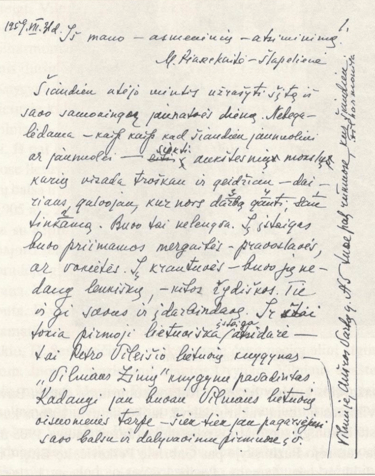 1959.VII.31d. Iš mano – asmeninių – atsiminimų!
M. –Šlapelienė
Šiandien atėjo mintis užrašyti šį tą iš
savo samoningos jaunatvės dienų. Nebega-
lėdama – kaip kad šiandien jaunuoliai
ar jaunuolės – siekti aukštesnių mokslų,
kurių visada troškau ir geidžiau – dai-
riaus, galvojau, kur nors darbą gauti,
tinkamą. Buvo tai nelengva. Į įstaigas
buvo priimamos mergaitės – pravoslavės,
ar vokietės. Į krautuves – buvo jų ne-
daug lenkiškų, – kitos žydiškos. Tie
vėl gi savus įdarbindavo. Ir štai
tokia pirmoji lietuviška įstaiga atsidarė –
tai Petro Vileišio lietuvių knygynas –
„Vilniaus Žinių" knygyne pavadintas.
Kadangi jau buvau Vilniaus lietuvių
visuomenės tarpe – šiek tiek jau pagarsėjusi
savo balsu ir dalyvavimu pirmuose
Vilniaus Aušros Vartų g. N5 tuose pat rūmuose, kur šiandien filharmonija